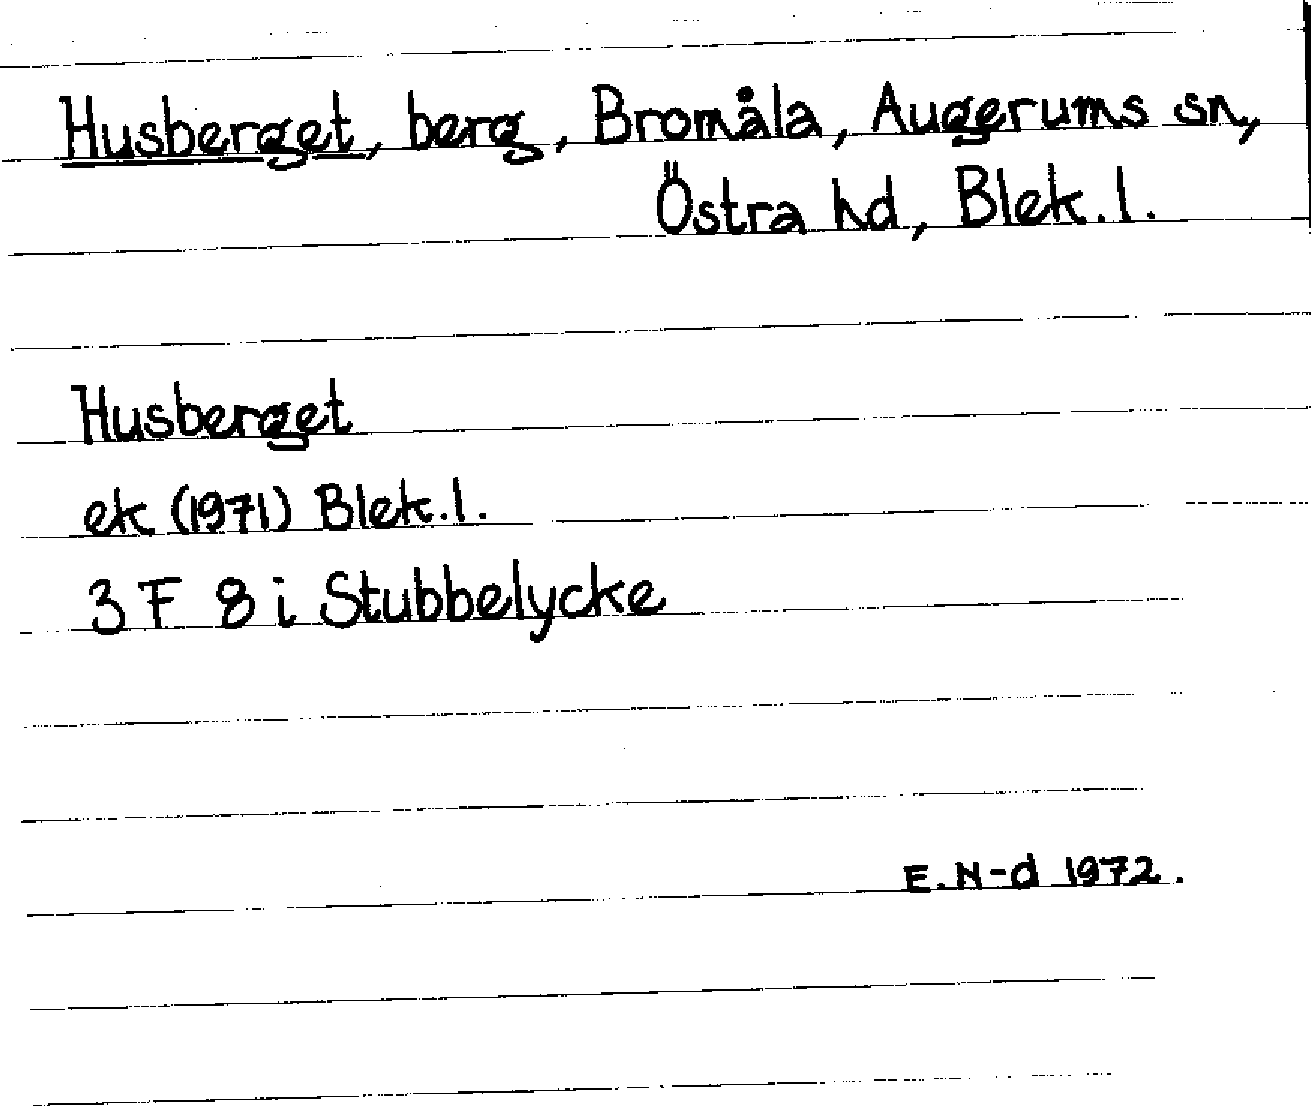 Husberget, berg, Bromåla, Augerums sn,
Östra hd, Blek.l.
Husberget
ek (1971) Blek.l.
3 F 8 i Stubbelycke
E. N-d 1972.